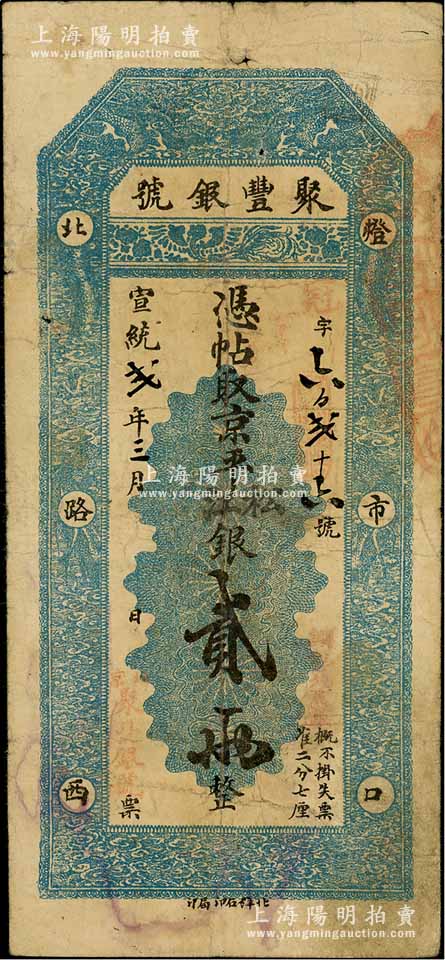 上海陽明拍賣
www.yangmingauction.com
聚豐銀號
燈市口
北路西
字六百弍十六號
憑帖取京平松江銀貳兩整
概不掛失票
准二分七厘
宣統弍年三月 日 票
上海陽明拍賣
www.yangmingauction.com
上海陽明拍賣
www.yangmingauction.com